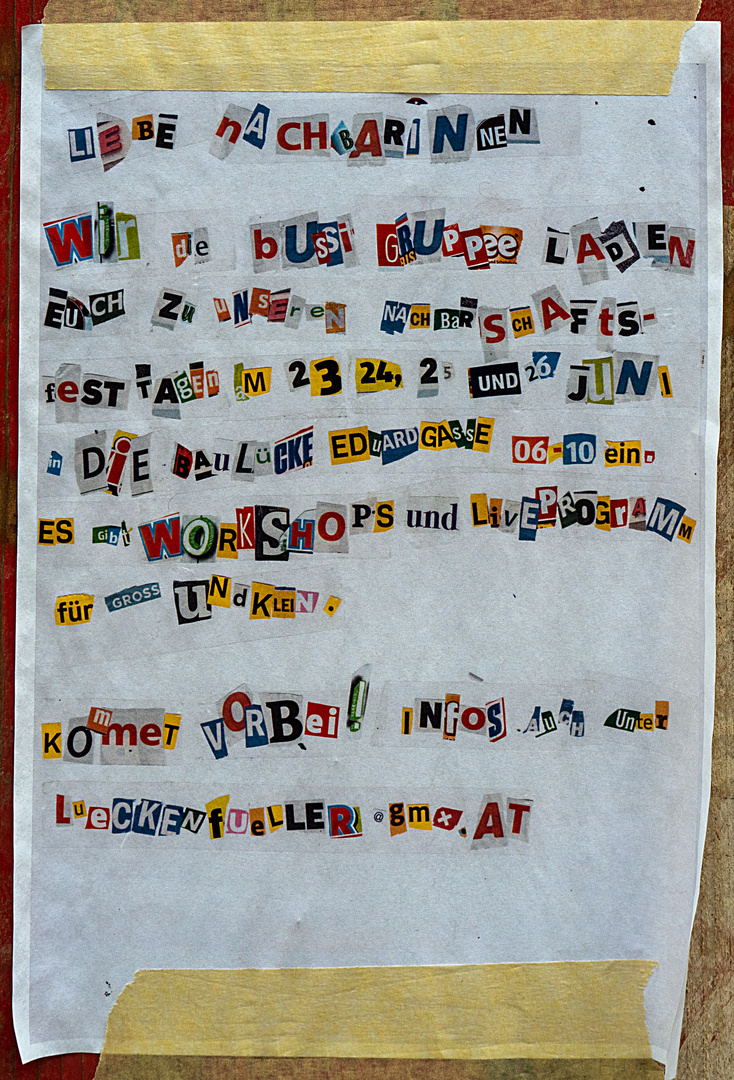 LIEBE nACHBARINNEN
Wir die bUSSi GRUPPee LADEN
EUCH ZU UNSEREN NACHBARSCHAFtS-
feST TAGEN AM 23 24, 25 UND 26 JUNI
in DiE BAuLüCKE EDUARDGASSE 06-10 ein.
ES Gibt WORKSHOPS und LivEPROGrAMM
für GROSS UNd KLEIN.
KOmmeT VORBei! INfOS AuCH UnTer
LueCKENfueLLER@gmx.AT